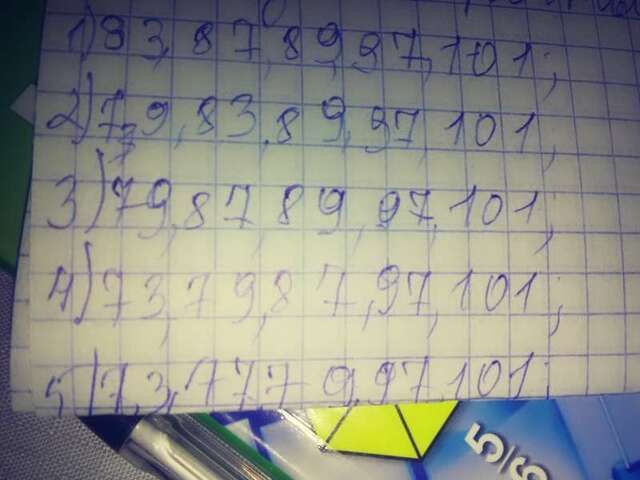 1) 83, 87, 89, 97, 101;
2) 79, 83, 89, 97, 101;
3) 79, 87, 89, 97, 101;
4) 73, 79, 87, 97, 101;
5) 73, 77, 79, 97, 101;
5/6